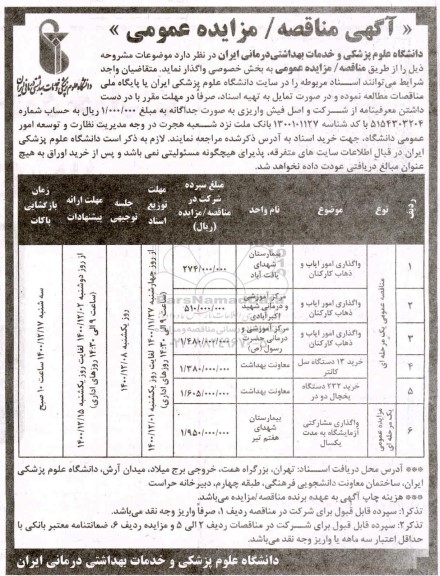 « آگهی مناقصه/ مزایده عمومی »
دانشگاه علوم پزشکی و خدمات بهداشتی درمانی ایران
دانشگاه علوم پزشکی و خدمات بهداشتی درمانی ایران در نظر دارد موضوعات مشروحه
ذیل را از طریق مناقصه/ مزایده عمومی به بخش خصوصی واگذار نماید. متقاضیان واجد
شرایط می‌توانند اسناد مربوطه را در سایت دانشگاه علوم پزشکی ایران یا پایگاه ملی
مناقصات مطالعه نموده و در صورت تمایل به تهیه اسناد، صرفاً در مهلت مقرر با در دست
داشتن معرفینامه از شرکت و اصل فیش واریزی به صورت جداگانه به مبلغ ۱/۰۰۰/۰۰۰ ریال به حساب شماره
۵۱۵۴۳۰۳۲۰۴ با کد شناسه ۱۳۰۰۱۰۱۱۲۷ بانک ملت نزد شعبه هجرت در وجه مدیریت نظارت و توسعه امور
عمومی دانشگاه، جهت خرید اسناد به آدرس ذکرشده مراجعه نمایند. لازم به ذکر است دانشگاه علوم پزشکی
ایران در قبال اطلاعات سایت های متفرقه، پذیرای هیچگونه مسئولیتی نمی باشد و پس از خرید اوراق به هیچ
عنوان مبالغ دریافتی عودت داده نخواهد شد.
ردیف | نوع | موضوع | نام واحد | مبلغ سپرده شرکت در مناقصه/مزایده (ریال) | مهلت توزیع اسناد | جلسه توجیهی | مهلت ارائه پیشنهادات | زمان بازگشایی پاکات
۱ | واگذاری امور ایاب و ذهاب کارکنان | بیمارستان شهدای یافت آباد | ۲۷۴/۰۰۰/۰۰۰
۲ | واگذاری امور ایاب و ذهاب کارکنان | مرکز آموزشی و درمانی شهید اکبرآبادی | ۵۱۰/۰۰۰/۰۰۰
۳ | واگذاری امور ایاب و ذهاب کارکنان | مرکز آموزشی و درمانی حضرت رسول (ص) | ۱/۴۸۱/۰۰۰/۰۰۰
۴ | خرید ۱۳ دستگاه سل کانتر | معاونت بهداشت | ۱/۳۸۰/۰۰۰/۰۰۰
۵ | خرید ۲۲۲ دستگاه یخچال دو در | معاونت بهداشت | ۱/۶۰۵/۰۰۰/۰۰۰
۶ | واگذاری مشارکتی آزمایشگاه به مدت یکسال | بیمارستان شهدای هفتم تیر | ۱/۹۵۰/۰۰۰/۰۰۰
مناقصه عمومی یک مرحله ای
مزایده عمومی یک مرحله ای
از روز چهارشنبه ۱۴۰۰/۱۱/۲۷ لغایت روز یکشنبه ۱۴۰۰/۱۲/۰۱
(ساعت ۹ الی ۱۴:۳۰ روزهای اداری)
روز یکشنبه ۱۴۰۰/۱۲/۰۸
از روز دوشنبه ۱۴۰۰/۱۲/۰۲ لغایت روز یکشنبه ۱۴۰۰/۱۲/۱۵
(ساعت ۹ الی ۱۴:۳۰ روزهای اداری)
سه شنبه ۱۴۰۰/۱۲/۱۷ ساعت ۱۰ صبح
*** آدرس محل دریافت اسناد: تهران، بزرگراه همت، خروجی برج میلاد، میدان آرش، دانشگاه علوم پزشکی
ایران، ساختمان معاونت دانشجویی فرهنگی، طبقه چهارم، دبیرخانه حراست
*** هزینه چاپ آگهی به عهده برنده مناقصه/مزایده می‌باشد.
تذکر۱: سپرده قابل قبول برای شرکت در مناقصه ردیف ۱، صرفاً واریز وجه نقد می‌باشد.
تذکر۲: سپرده قابل قبول برای شرکت در مناقصات ردیف ۲ الی ۵ و مزایده ردیف ۶، ضمانتنامه معتبر بانکی با
حداقل اعتبار سه ماهه یا واریز وجه نقد می‌باشد.
دانشگاه علوم پزشکی و خدمات بهداشتی درمانی ایران